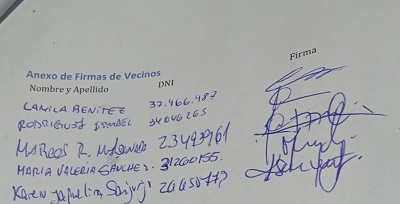 Firma
Anexo de Firmas de Vecinos
Nombre y Apellido DNI
CAMILA BENITEZ 37.466.487
RODRIGUEZ ISMAEL 34046265
MARCOS R. 23493961
MARIA VALERIA SANCHEZ. 31260155.
Karen Jaquelina 26650773